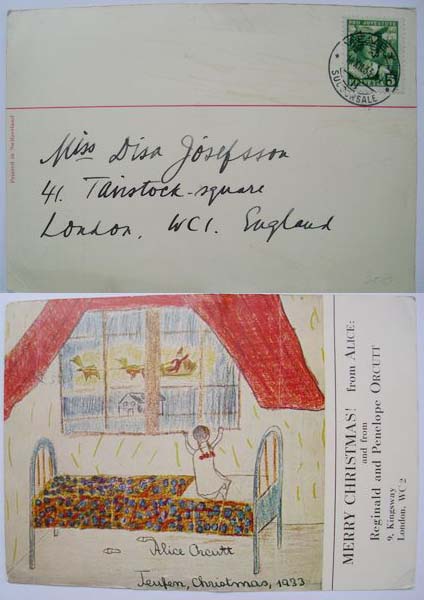 PRO JUVENTUTE
5
SUCCURSALE
Printed in Switzerland
Miss Disa Jósefsson
41. Tavistock-square
London, WC1. England
Alice Orcutt
Teufen, Christmas, 1933
MERRY CHRISTMAS! from ALICE:
and from
Reginald and Penelope ORCUTT
9, Kingsway
London, WC 2